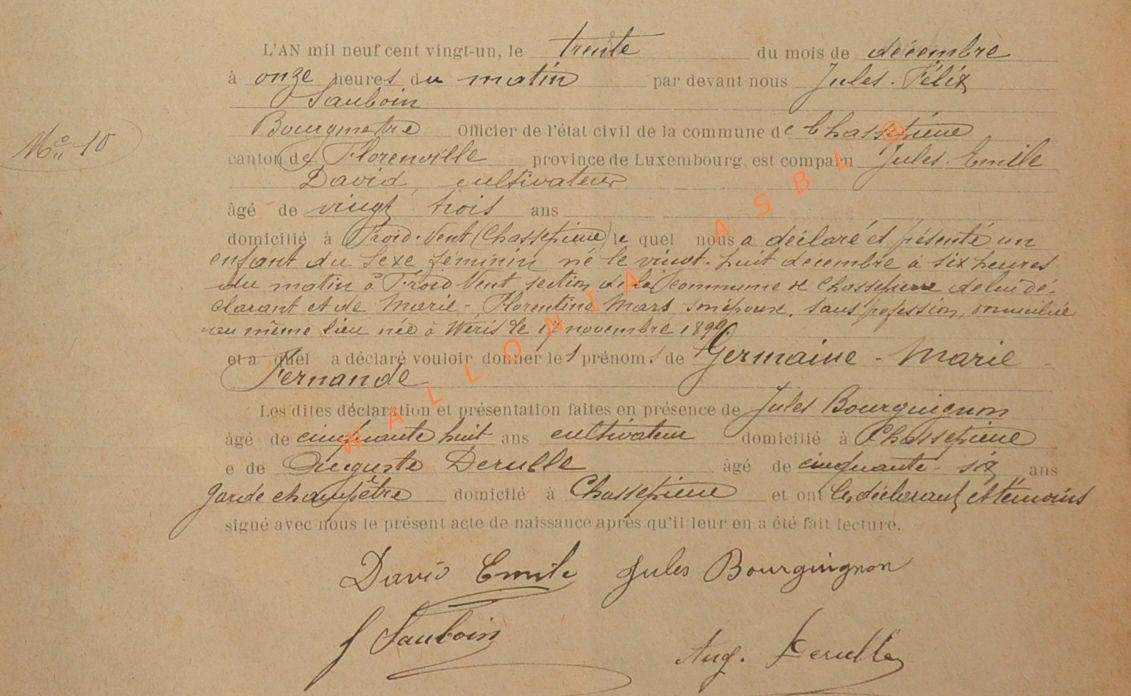 L'AN mil neuf cent vingt-un, le trente du mois de décembre
à onze heures du matin par devant nous Jules-Félix
Sauboin
Bourgmestre Officier de l'état civil de la commune de Chassepierre
N° 10
canton de Florenville province de Luxembourg, est comparu Jules-Emile
David, cultivateur
âgé de vingt trois ans
domicilié à Froid-Vent (Chassepierre) le quel nous a déclaré et présenté un
enfant du sexe féminin né le vingt-huit décembre à six heures
du matin à Froid Vent, section de la commune de Chassepierre de lui dé-
clarant et de Marie-Florentine Mars son épouse, sans profession, domiciliée
au même lieu née à Weris le novembre 1899
et a quel a déclaré vouloir donner les prénoms de Germaine-Marie-
Fernande
Les dites déclaration et présentation faites en présence de Jules Bourguignon
âgé de cinquante huit ans cultivateur domicilié à Chassepierre
e de Auguste Derulle âgé de cinquante-six ans
garde champêtre domicilié à Chassepierre et ont les déclarant et témoins
signé avec nous le présent acte de naissance après qu'il leur en a été fait lecture.
David Emile Jules Bourguignon
J Sauboin
Aug. Derulle
WALLONIA ASBL ®